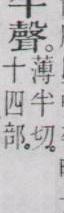 聲。
薄半切。
十四部。